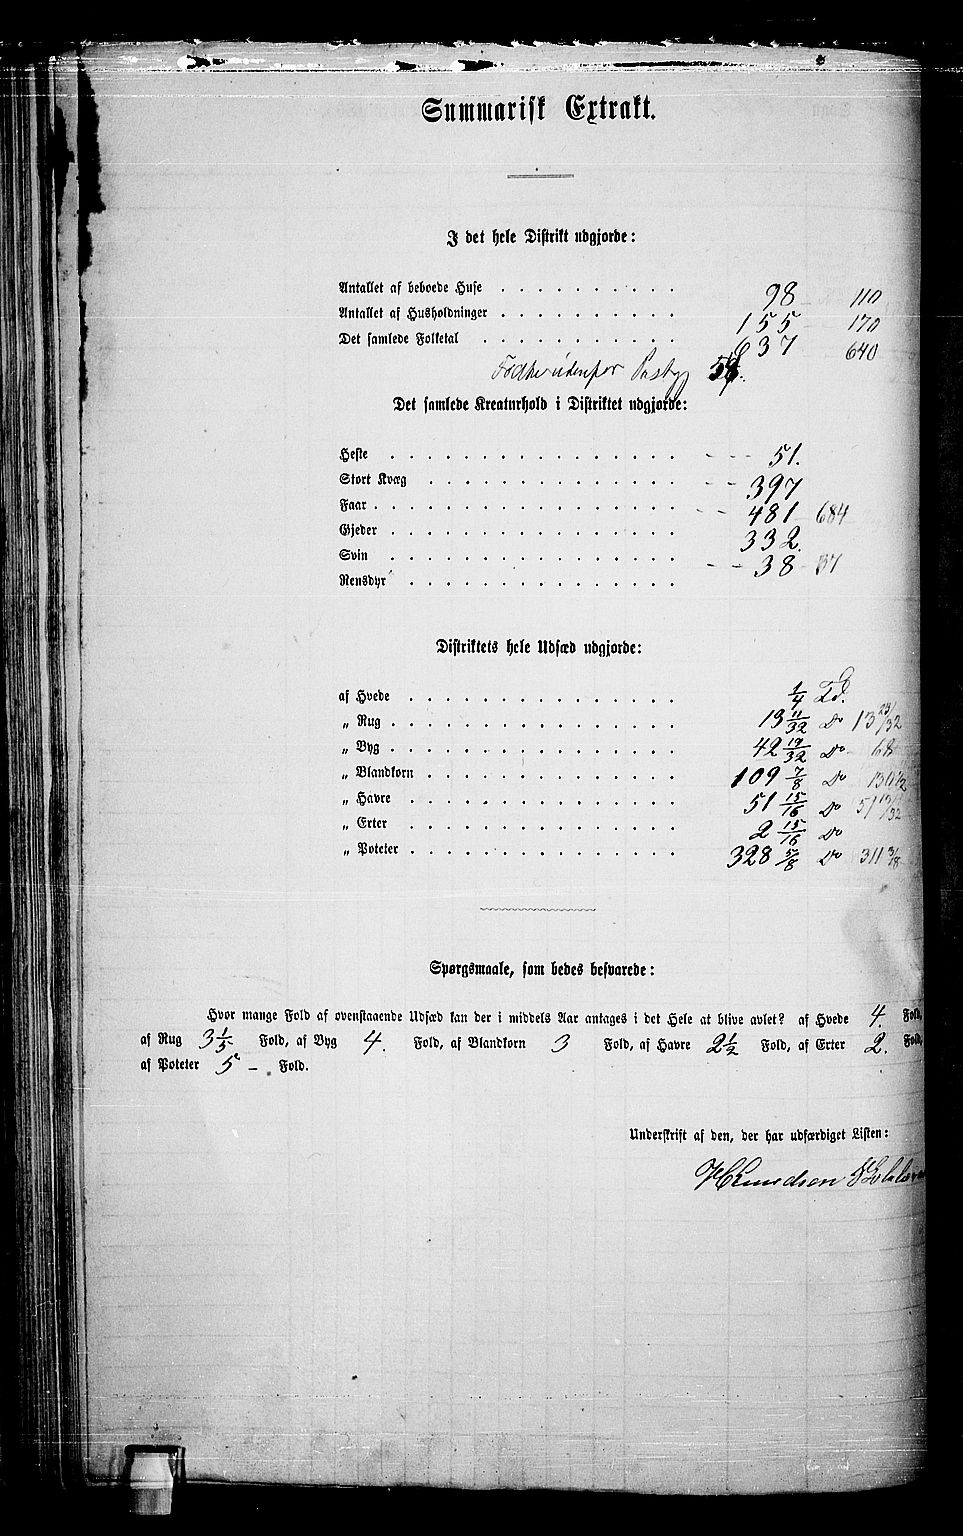 Summarisk Extrakt.
I det hele Distrikt udgjorde:
Antallet af beboede Huse . . . . . . . . . . 98 110
Antallet af Husholdninger . . . . . . . . . . 155 170
Det samlede Folketal . . . . . . . . . . . 637 640
58
Det samlede Kreaturhold i Distriktet udgjorde:
Heste . . . . . . . . . . . . . . . . 51.
Stort Kvæg . . . . . . . . . . . . . . 397
Faar . . . . . . . . . . . . . . . . . 481 684
Gjeder . . . . . . . . . . . . . . . . 332.
Svin . . . . . . . . . . . . . . . . 38 37
Rensdyr . . . . . . . . . . . . . . .
Distriktets hele Udsæd udgjorde:
af Hvede . . . . . . . . . . . . . . . 1/4 Td.
„ Rug . . . . . . . . . . . . . . . . 13 11/32 Do 13 23/32
„ Byg . . . . . . . . . . . . . . . . 42 19/32 Do 68
„ Blandkorn . . . . . . . . . . . . . . 109 7/8 Do 130 1/2
„ Havre . . . . . . . . . . . . . . . 51 15/16 Do 51
„ Erter . . . . . . . . . . . . . . . 2 15/16 Do
„ Poteter . . . . . . . . . . . . . . . 328 5/8 Do 311 3/8
Spørgsmaale, som bedes besvarede:
Hvor mange Fold af ovenstaaende Udsæd kan der i middels Aar antages i det Hele at blive avlet? af Hvede 4. Fold,
af Rug 3 1/5 Fold, af Byg 4. Fold, af Blandkorn 3 Fold, af Havre 2 1/2 Fold, af Erter 2. Fold,
af Poteter 5 – Fold.
Underskrift af den, der har udfærdiget Listen:
Knudsen